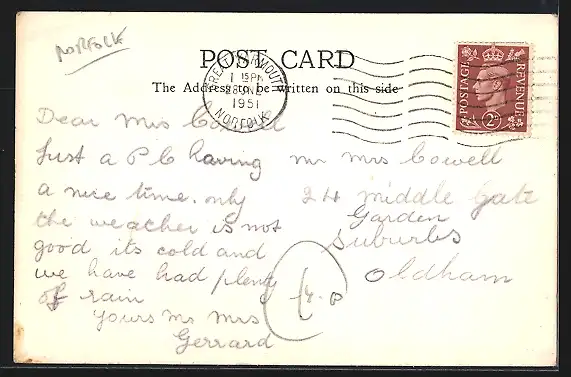 NORFOLK
POST CARD
The Address to be written on this side
GREAT YARMOUTH
1 15 PM
28 JNE
1951
NORFOLK
POSTAGE REVENUE
2D
Dear Mrs
Just a P C having
a nice time. only
the weather is not
good its cold and
we have had plenty
of rain
Yours Mr Mrs
Gerrard
Mr Mrs Cowell
24 Middle Gate
Garden
Suburbs
Oldham